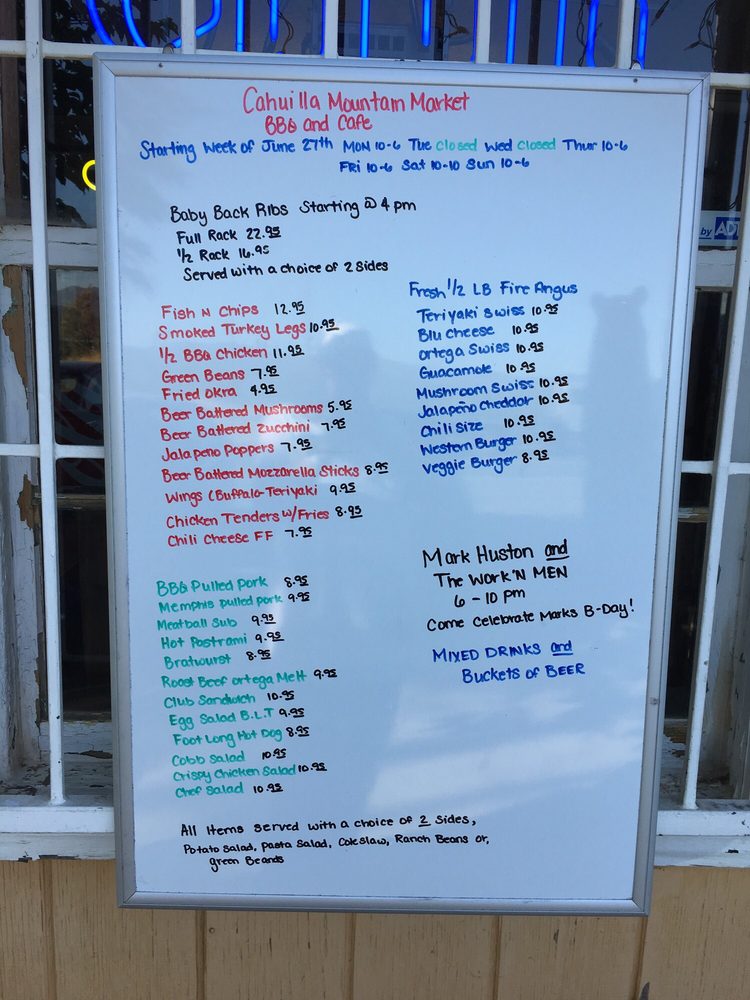 Cahuilla Mountain Market
BBQ and Cafe
Starting Week of June 27th MON 10-6 Tue closed Wed closed Thur 10-6
Fri 10-6 Sat 10-10 Sun 10-6
Baby Back Ribs Starting @ 4 pm
Full Rack 22.95
1/2 Rack 16.95
Served with a choice of 2 sides
Fish N Chips 12.95
Smoked Turkey Legs 10.95
1/2 BBQ Chicken 11.95
Green Beans 7.95
Fried Okra 4.95
Beer Battered Mushrooms 5.95
Beer Battered Zucchini 7.95
Jalapeno Poppers 7.95
Beer Battered Mozzarella Sticks 8.95
Wings (Buffalo-Teriyaki 9.95
Chicken Tenders w/Fries 8.95
Chili Cheese FF 7.95
BBQ Pulled Pork 8.95
Memphis pulled pork 9.95
Meatball Sub 9.95
Hot Pastrami 9.95
Bratwurst 8.95
Roast Beef Ortega Melt 9.95
Club Sandwich 10.95
Egg Salad B.L.T 9.95
Foot Long Hot Dog 8.95
Cobb Salad 10.95
Crispy Chicken Salad 10.95
Chef Salad 10.95
Fresh 1/2 LB Fire Angus
Teriyaki Swiss 10.95
Blu Cheese 10.95
Ortega Swiss 10.95
Guacamole 10.95
Mushroom Swiss 10.95
Jalapeño Cheddar 10.95
Chili Size 10.95
Western Burger 10.95
Veggie Burger 8.95
Mark Huston and
The Work'N MEN
6 - 10 pm
Come Celebrate Marks B-Day!
MIXED DRINKS and
Buckets of BEER
All Items served with a choice of 2 sides,
Potato Salad, Pasta Salad, Coleslaw, Ranch Beans or,
green Beands
by ADT